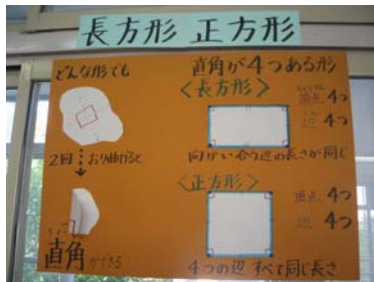 長方形 正方形
どんな形でも
2回 おり曲げると
直角ができる
直角が4つある形
<長方形>
ちょうてん
頂点 4つ
辺 4つ
向かい合う辺の長さが同じ
<正方形>
頂点 4つ
辺 4つ
4つの辺 すべて同じ長さ